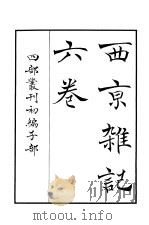 西京雜記
六卷
四部叢刊初編子部
mtoou.info